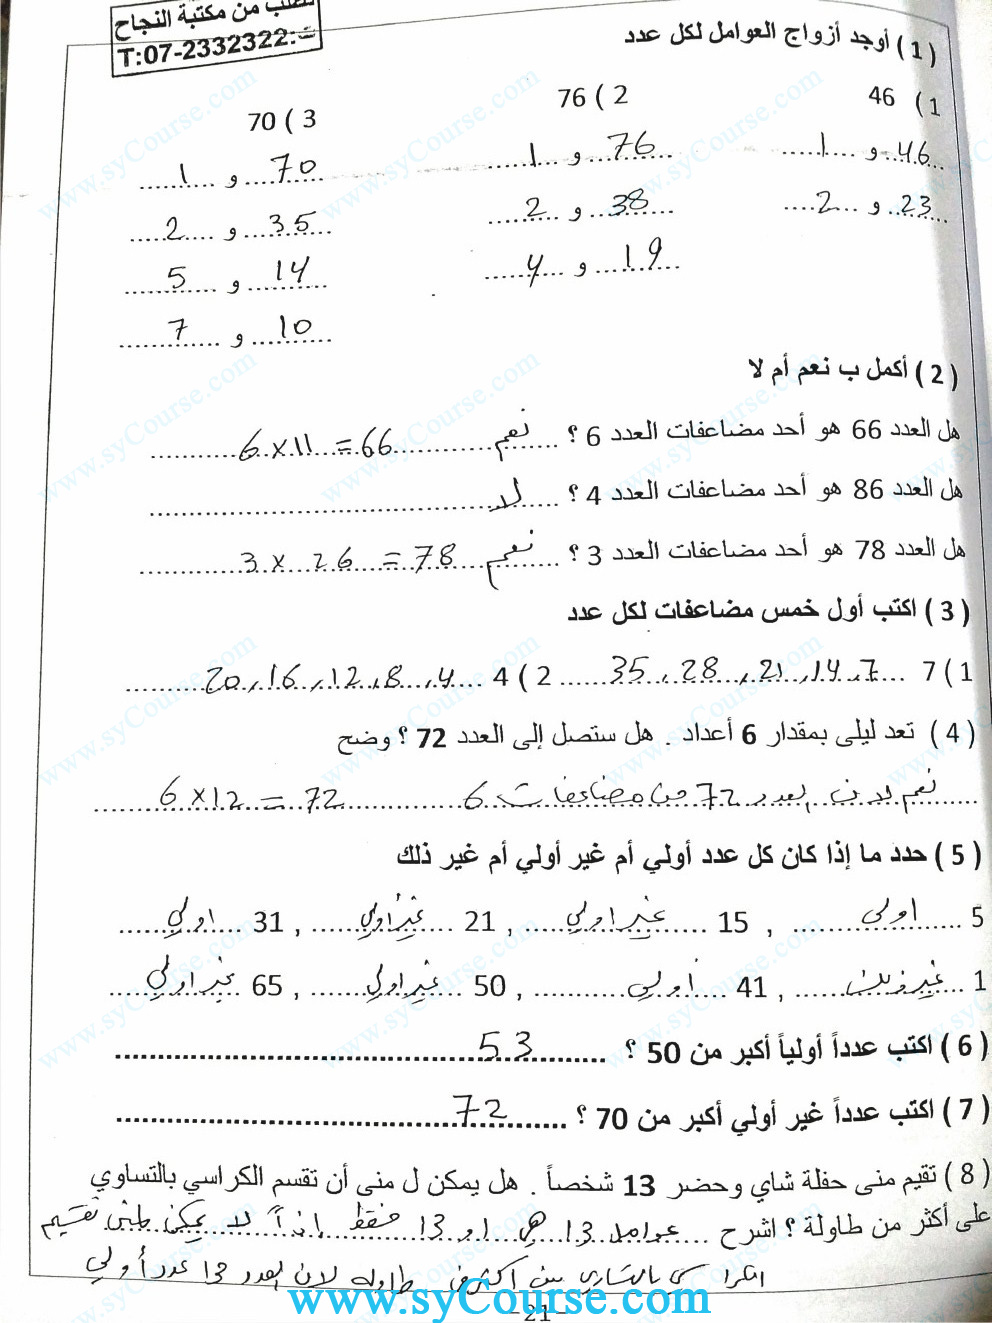 تطلب من مكتبة النجاح
ت:2332322-T:07
( 1 ) أوجد أزواج العوامل لكل عدد
1 ) 46
2 ) 76
3 ) 70
46 و 1
76 و 1
70 و 1
23 و 2
38 و 2
35 و 2
19 و 4
14 و 5
10 و 7
( 2 ) أكمل ب نعم أم لا
هل العدد 66 هو أحد مضاعفات العدد 6 ؟ نعم 6×11=66
هل العدد 86 هو أحد مضاعفات العدد 4 ؟ لا
هل العدد 78 هو أحد مضاعفات العدد 3 ؟ نعم 3×26=78
( 3 ) اكتب أول خمس مضاعفات لكل عدد
1 ) 7 7، 14، 21، 28، 35 2 ) 4 4، 8، 12، 16، 20
( 4 ) تعد ليلى بمقدار 6 أعداد . هل ستصل إلى العدد 72 ؟ وضح
نعم لان العدد 72 من مضاعفات 6 6×12=72
( 5 ) حدد ما إذا كان كل عدد أولي أم غير أولي أم غير ذلك
5 اولي , 15 غير اولي , 21 غير أولي , 31 اولي
1 غير ذلك , 41 أولي , 50 غير اولي , 65 غير اولي
( 6 ) اكتب عدداً أولياً أكبر من 50 ؟ 53
( 7 ) اكتب عدداً غير أولي أكبر من 70 ؟ 72
( 8 ) تقيم منى حفلة شاي وحضر 13 شخصاً . هل يمكن ل منى أن تقسم الكراسي بالتساوي
على أكثر من طاولة ؟ اشرح عوامل 13 هي 1 و 13 فقط إذاً لا يمكن لمنى تقسيم
الكراسي بالتساوي بين أكثر من طاولة لان العدد 13 عدد أولي
www.syCourse.com
- 21 -